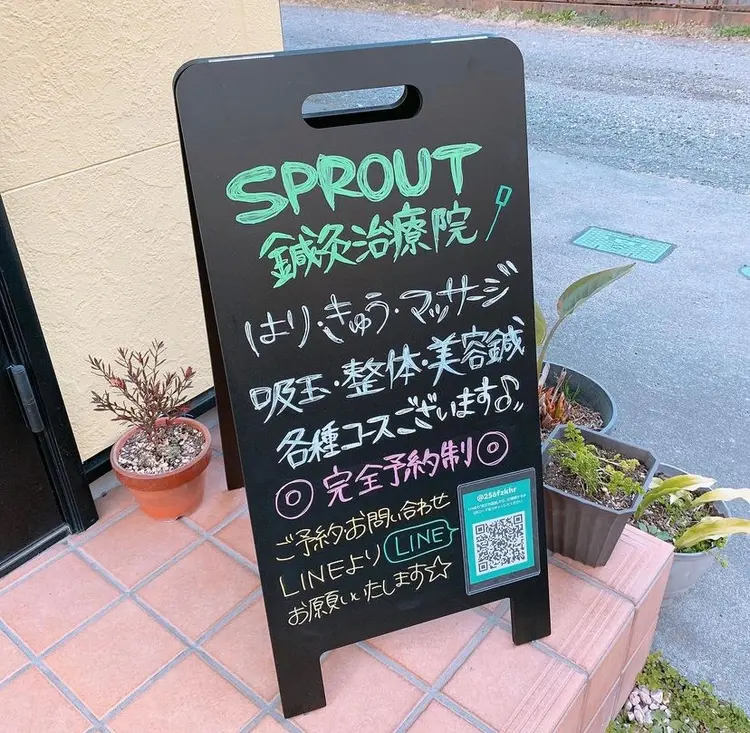 SPROUT
鍼灸治療院
はり・きゅう・マッサージ
吸玉・整体・美容鍼
各種コースございます♪
◎完全予約制◎
ご予約お問い合わせ
LINEより LINE
お願いいたします☆
@256fzkhr